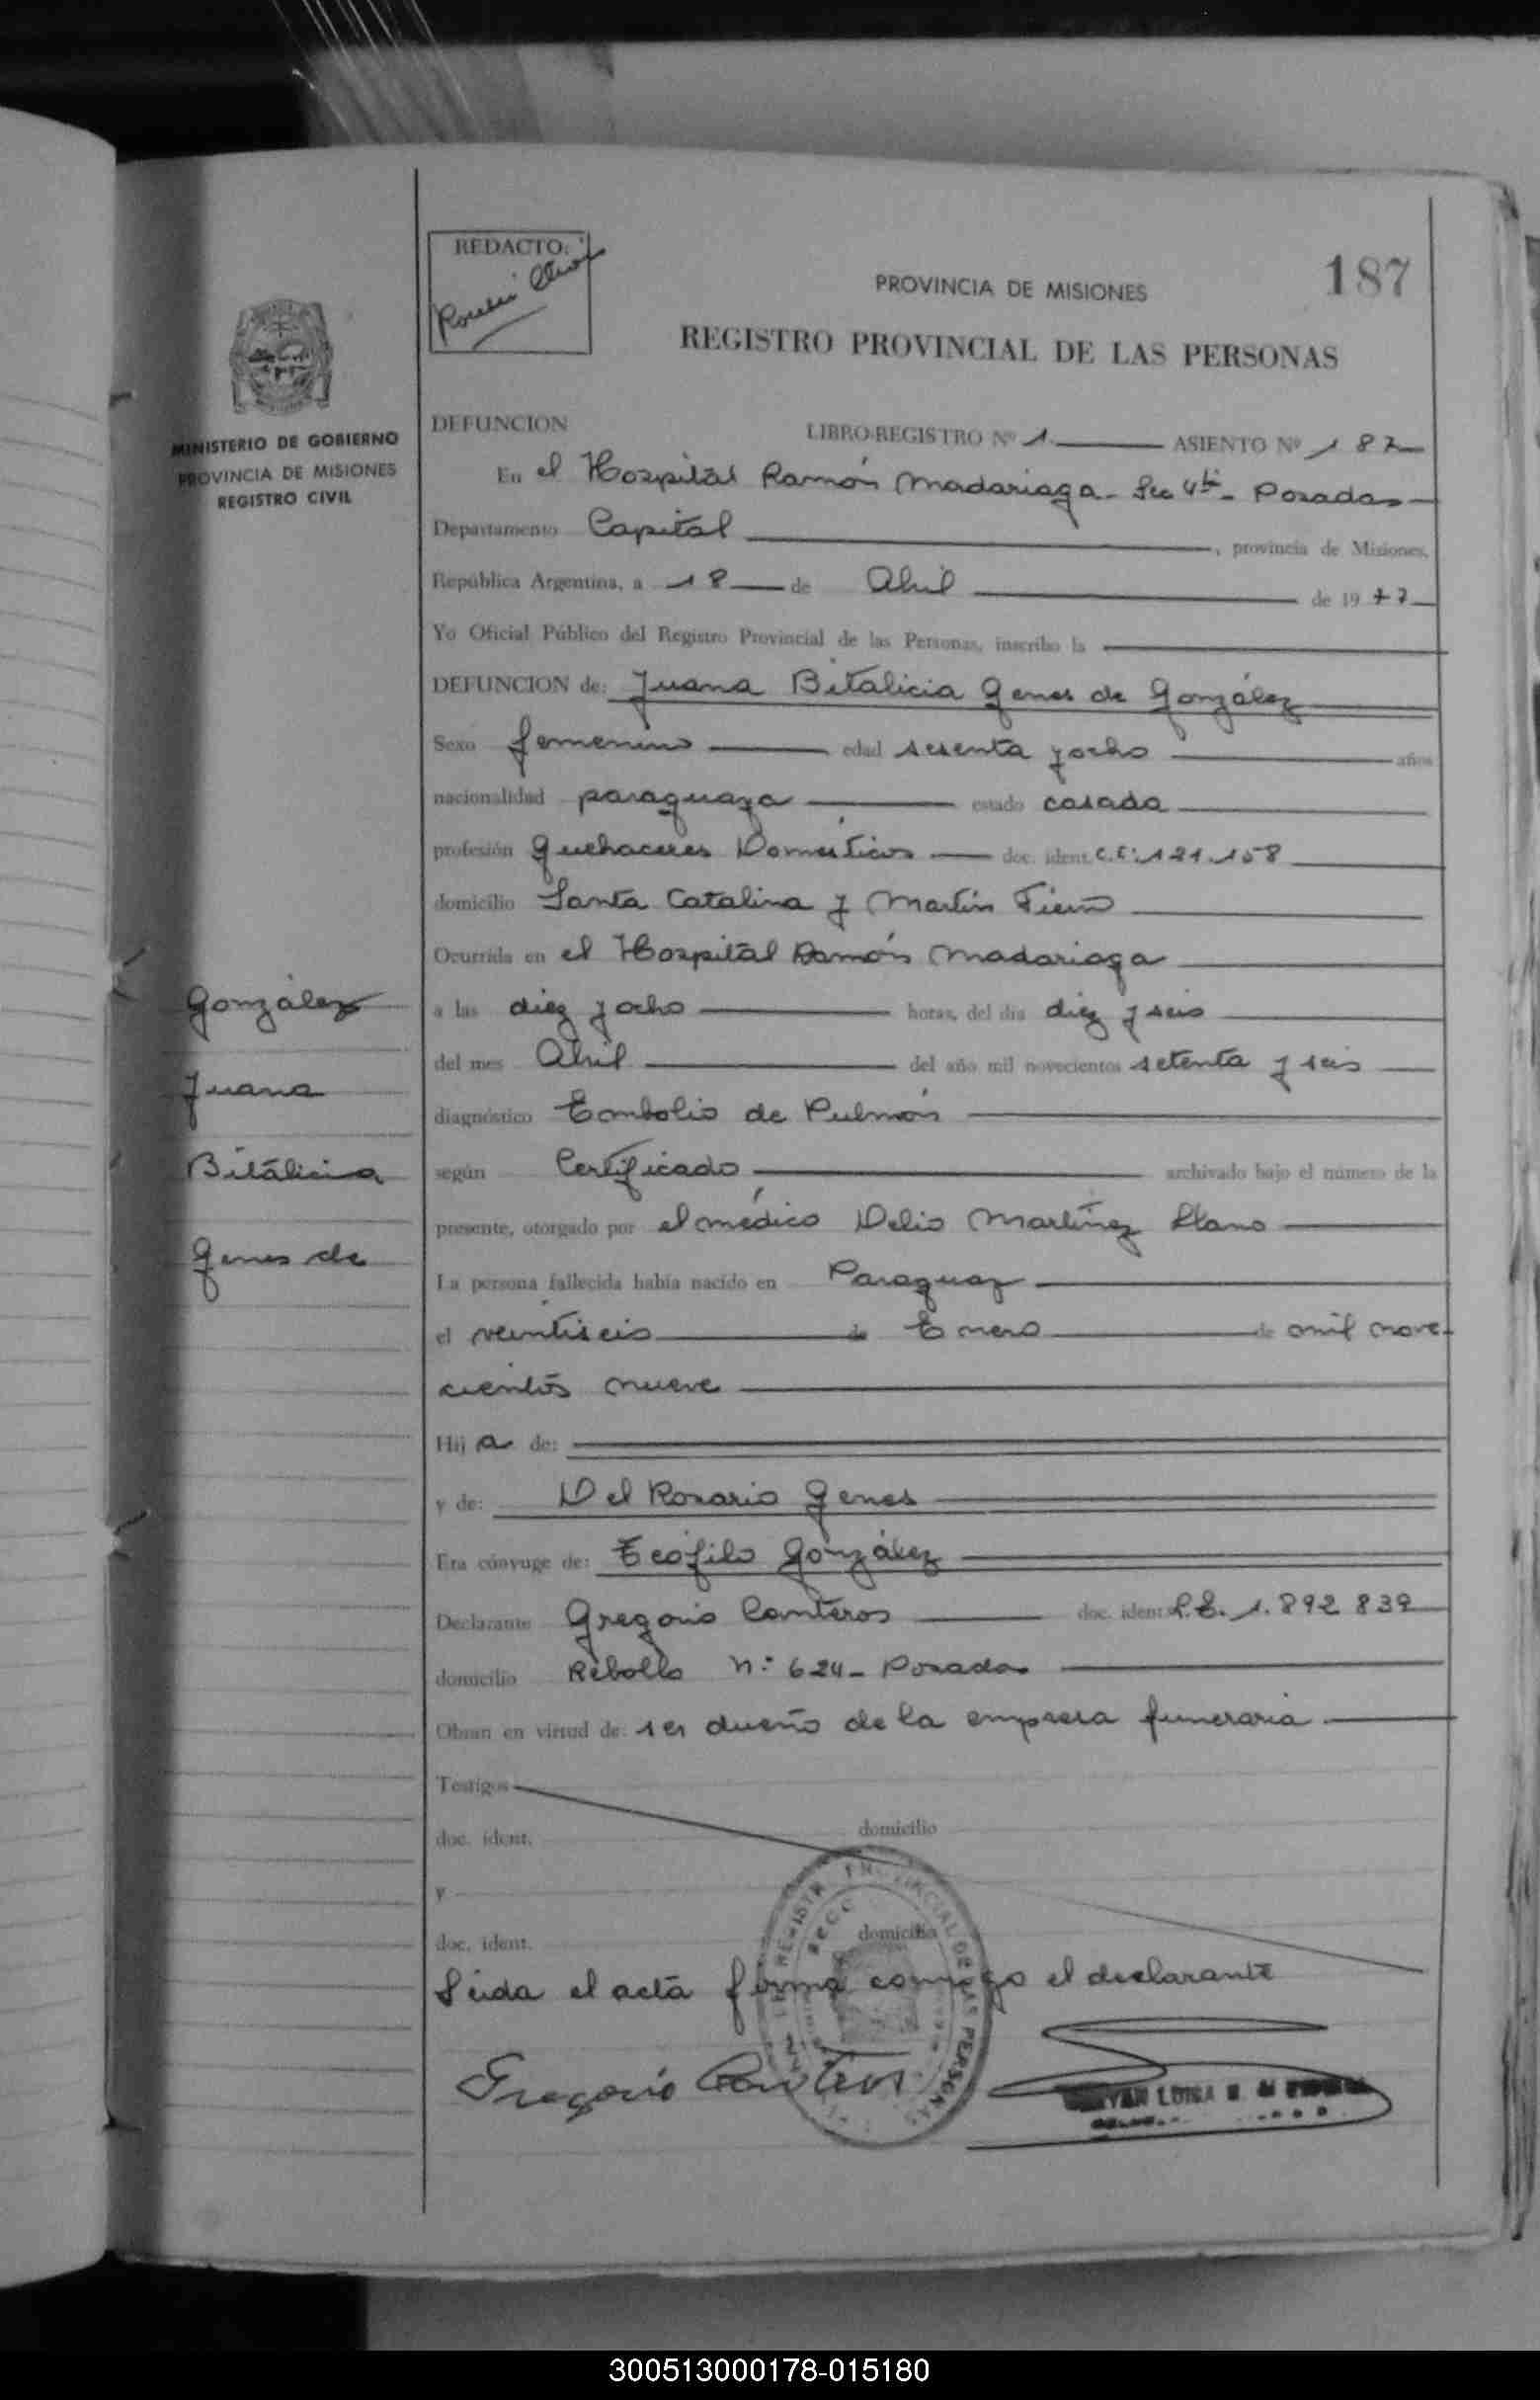 REDACTO:
187
PROVINCIA DE MISIONES
REGISTRO PROVINCIAL DE LAS PERSONAS
MINISTERIO DE GOBIERNO
PROVINCIA DE MISIONES
REGISTRO CIVIL
DEFUNCION LIBRO-REGISTRO Nº 1 ASIENTO Nº 187
En el Hospital Ramón Madariaga - Sec 4ta - Posadas
Departamento Capital, provincia de Misiones,
República Argentina, a 18 de Abril de 1977
Yo Oficial Público del Registro Provincial de las Personas, inscribo la
DEFUNCION de: Juana Bitalicia Genes de González
Sexo femenino edad sesenta y ocho años
nacionalidad paraguaya estado casada
profesión Quehaceres Domésticos doc. ident. C.I. 121.158
domicilio Santa Catalina y Martín Fierro
Ocurrida en el Hospital Ramón Madariaga
a las diez y ocho horas, del día diez y seis
del mes Abril del año mil novecientos setenta y seis
diagnóstico Embolio de Pulmón
según Certificado archivado bajo el número de la
presente, otorgado por el médico Delio Martínez Llano
La persona fallecida había nacido en Paraguay
el veintiseis de Enero de mil nove-
cientos nueve
Hij a de:
y de: Del Rosario Genes
Era cónyuge de: Teófilo González
Declarante Gregorio Canteros doc. ident. L.E. 1.892 839
domicilio Rebollo N.º 624 - Posadas
Obran en virtud de: ser dueño de la empresa funeraria
Testigos
doc. ident. domicilio
y
doc. ident. domicilio
Leida el acta firma conmigo el declarante
Gregorio Canteros
González
Juana
Bitálicia
Genes de
300513000178-015180